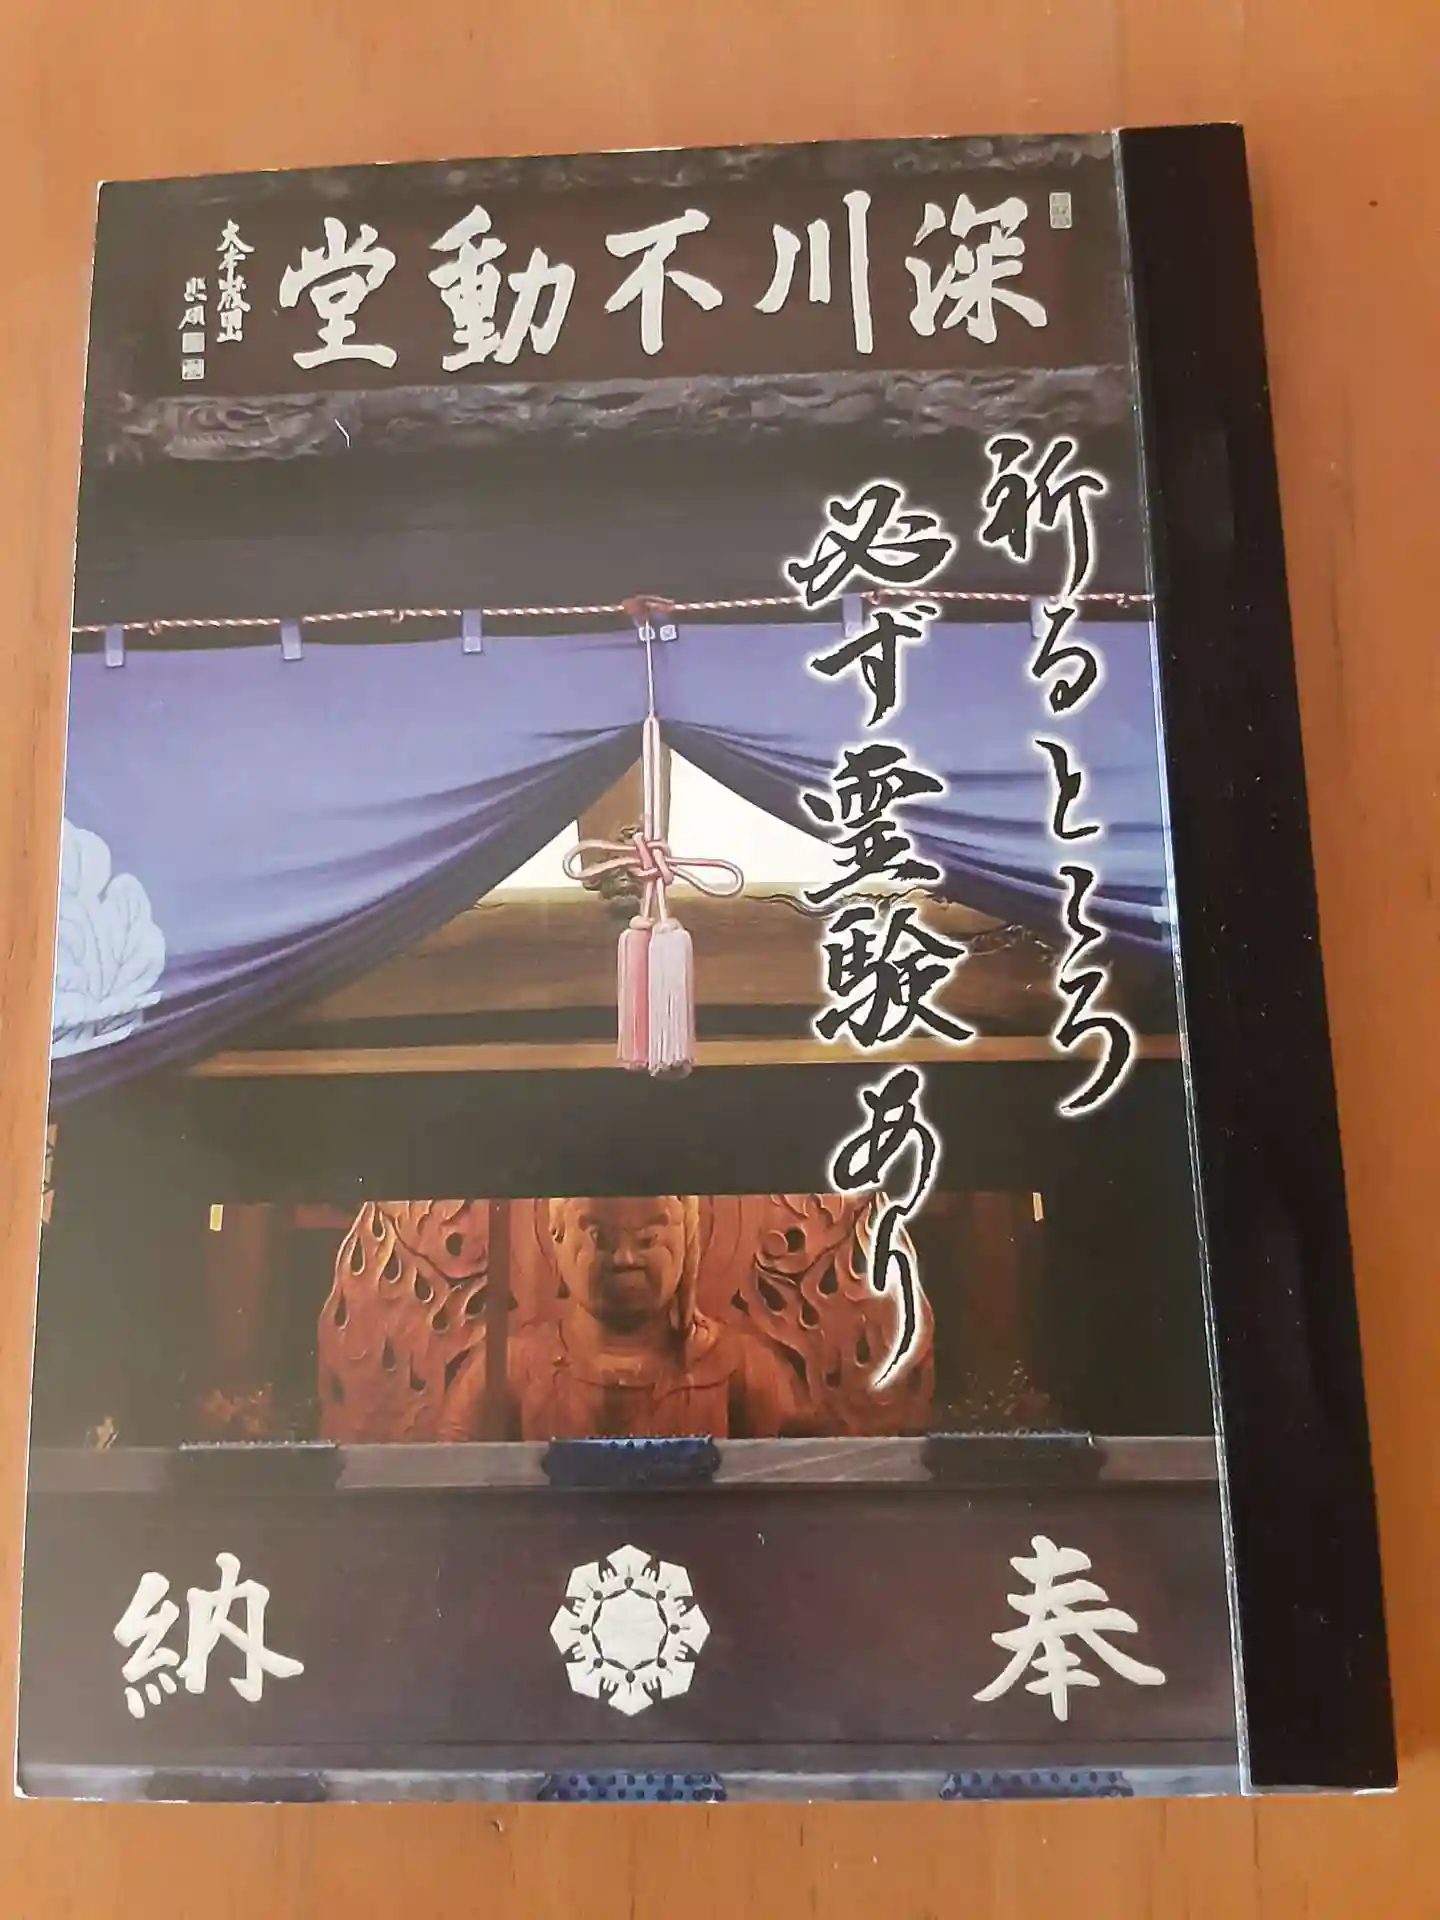 深川不動堂
大本山成田山
祈るところ
必ず霊験あり
奉納